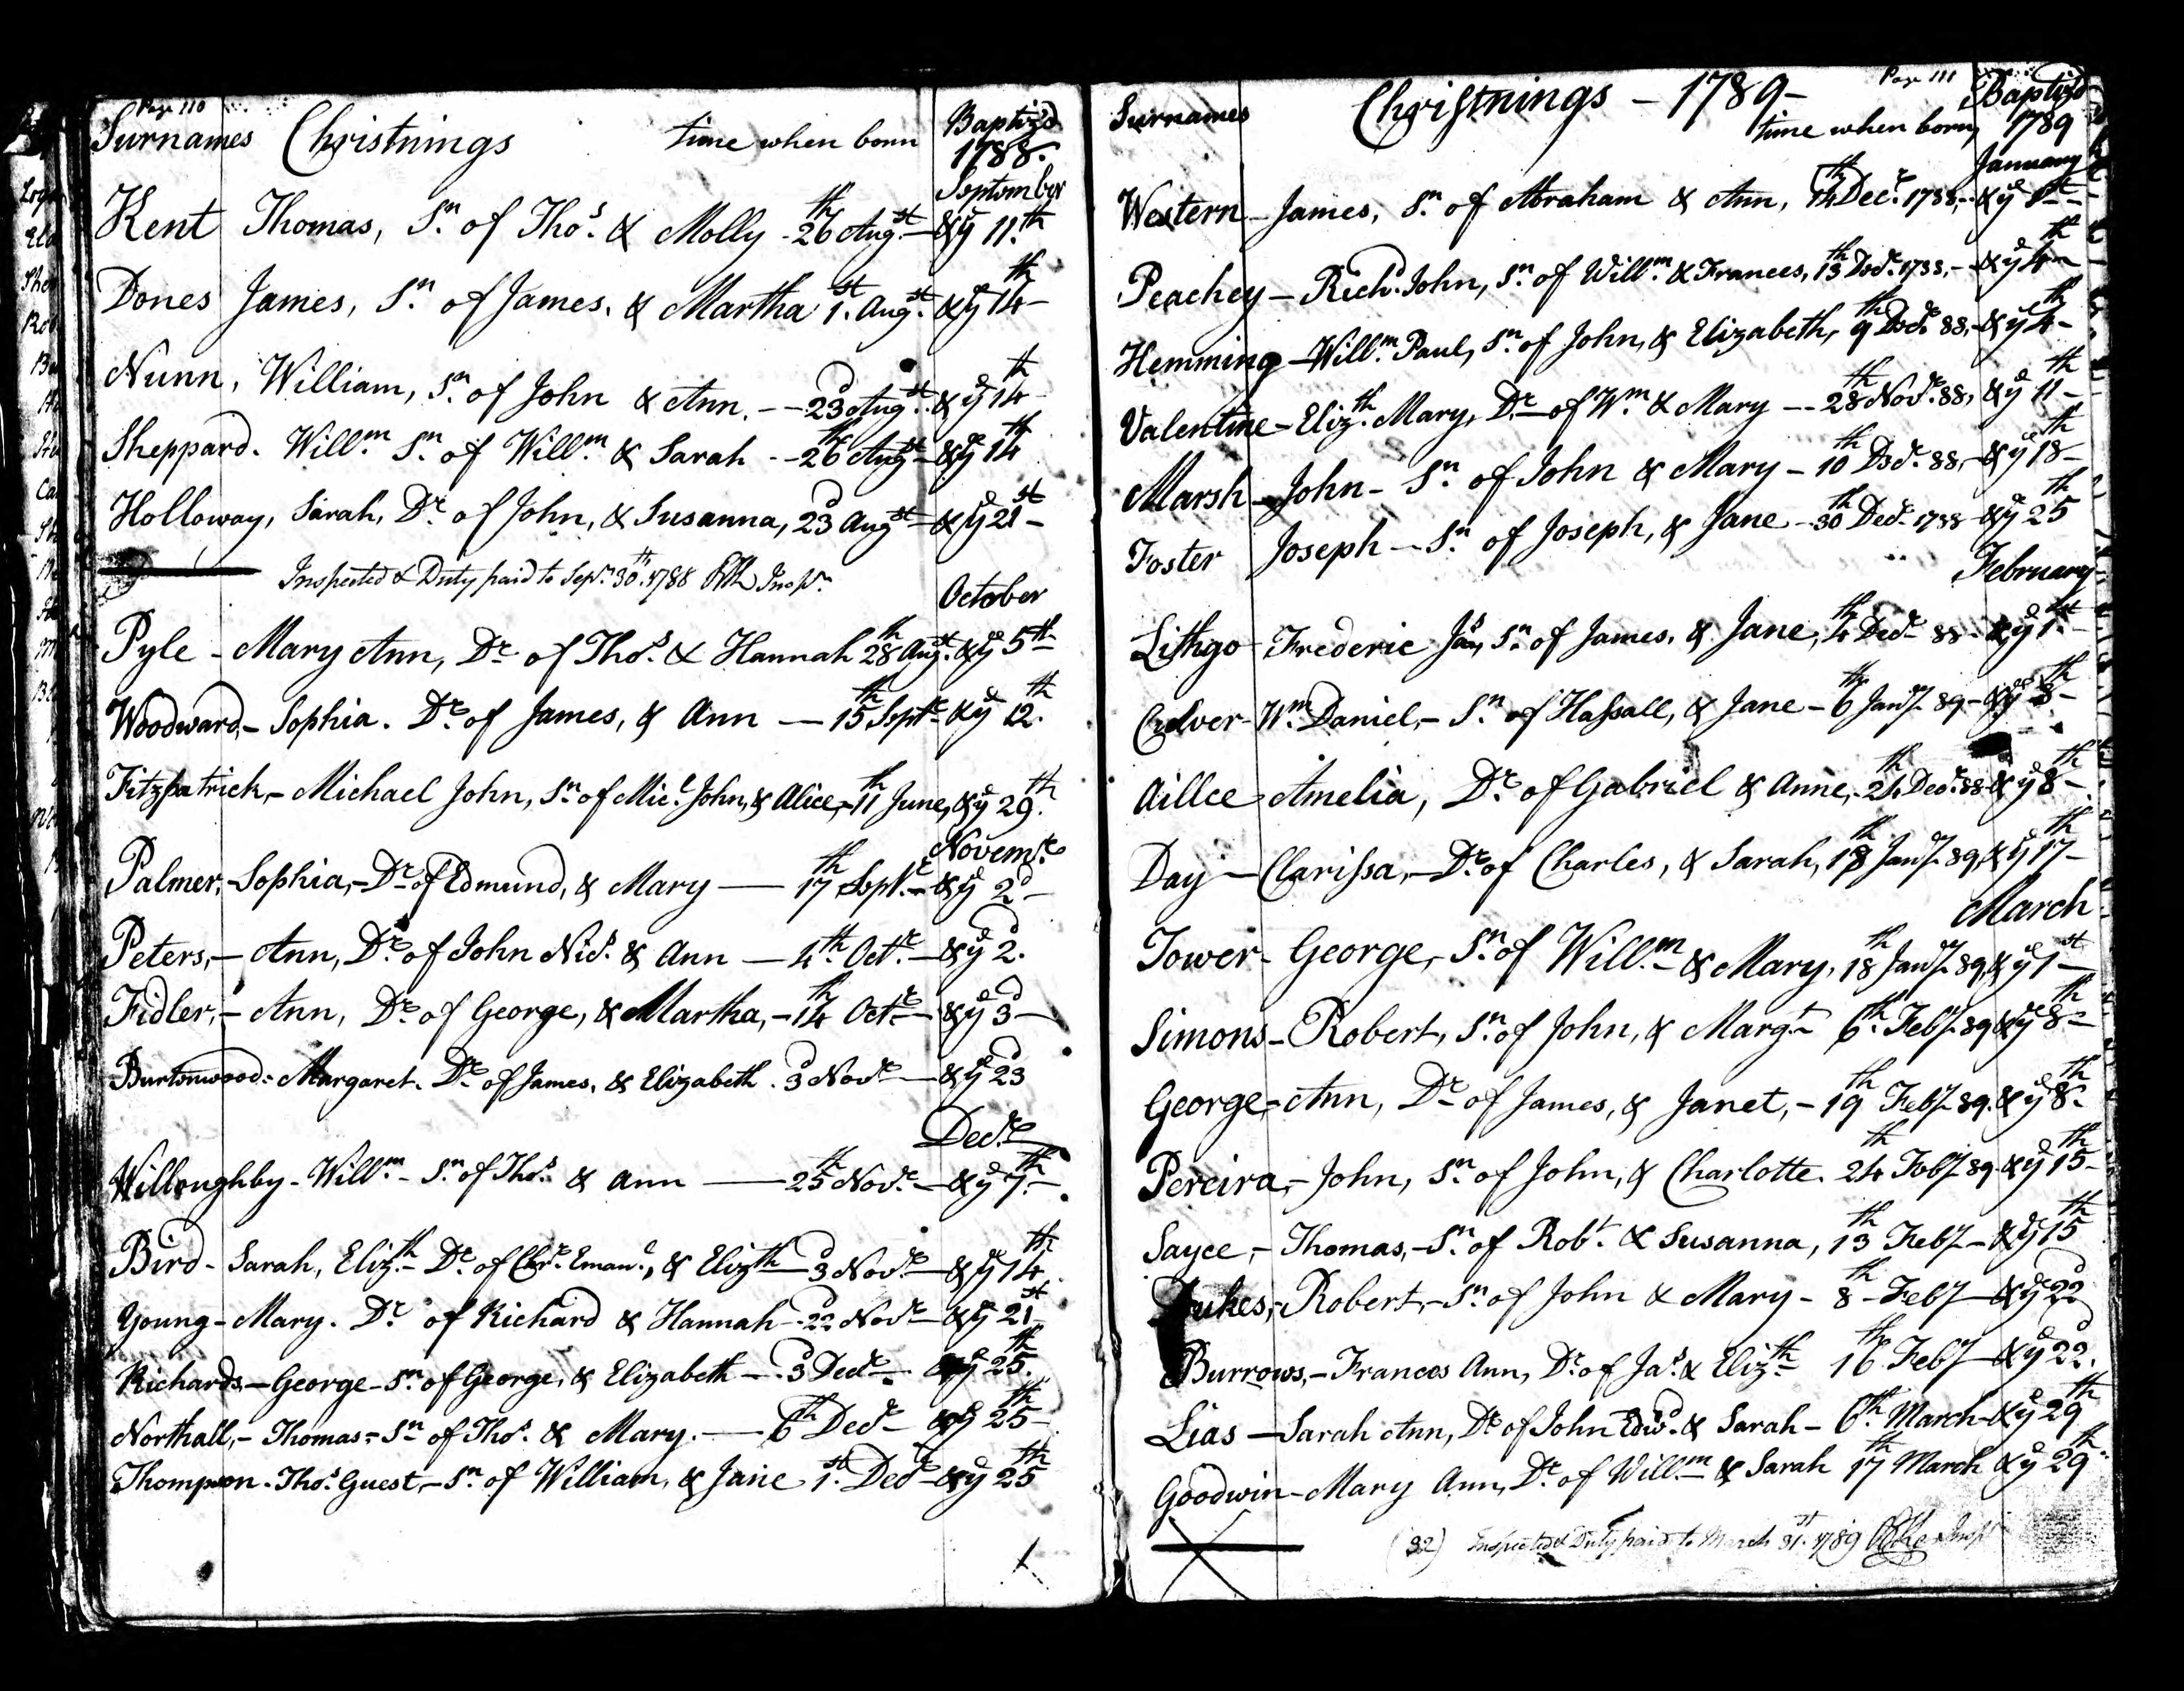 Page 110
Surnames Christnings time when born Baptiz'd 1788.
September
Kent Thomas, Sn. of Thos. & Molly - 26th Augst. - & ye 11.th
Dones James, Sn. of James. & Martha 1st. Augst. & ye 14th -
Nunn, William, Sn. of John & Ann. - - 23d Augst. & ye 14th
Sheppard. Willm. Sn. of Willm. & Sarah - - 26th Augst - & ye 14th
Holloway, Sarah, Dr. of John, & Susanna, 23d Augst - & ye 21st -
Inspected & Duty paid to Sepr. 30th. 1788
October
Pyle - Mary Ann, Dr of Thos. & Hannah 28th Augst. & ye 5th
Woodward, - Sophia. Dr. of James, & Ann — 15th Septr & ye 12th.
Fitzpatrick, - Michael John, Sn. of Micl. John, & Alice, - 11th June, & ye 29th.
Novemr.
Palmer, - Sophia, - Dr of Edmund, & Mary — 17th Septr. - & ye 2d -
Peters, - Ann, Dr. of John Nics. & Ann — 4th. Octr. - & ye 2d.
Fidler, - Ann, Dr. of George, & Martha, - 14th Octr - & ye 3d -
Burtonwood - Margaret. Dr. of James, & Elizabeth. 3d Novr - & ye 23d
Decr.
Willoughby - Willm. - Sn. of Thos. & Ann — 25th Novr. - & ye 7th. -
Bird - Sarah, Elizth. - Dr. of Chr. Emanl., & Elizth — 3d Novr. - & ye 14th.
Young - Mary. Dr. of Richard & Hannah - 22d Novr - & ye 21st
Richards - George - Sn. of George, & Elizabeth - . 3d Decr - & ye 25th.
Northall, - Thomas - Sn of Thos. & Mary. — 6th Decr - & ye 25th -
Thompson - Thos. Guest, - Sn. of William, & Jane 1st. Decr & ye 25th
Page 111
Surnames Christnings - 1789 - time when born, Baptiz'd 1789
January
Western - James, Sn. of Abraham & Ann, 14th Decr. 1788, - & ye 1st -
Peachey - Richd. John, Sn. of Willm. & Frances, 13th Decr. 1788, - & ye 4th -
Hemming - Willm. Paul, Sn. of John, & Elizabeth, 9th Decr. 88, - & ye 4th -
Valentine - Elizth. Mary, Dr - of Wm. & Mary - - 28th Novr. 88, & ye 11th -
Marsh - John - Sn. of John & Mary - 10th Decr. 88, - & ye 18th -
Foster Joseph - Sn. of Joseph, & Jane - 30th Decr. 1788 - & ye 25th
February
Lithgo - Frederic Jas, Sn. of James. & Jane, 4th Decr 88 - & ye 1st -
Culver - Wm. Daniel, - Sn. of Hassall, & Jane - 6th Jany. 89 - & ye 8th -
Aillee - Amelia, Dr. of Gabriel & Anne, - 24th Decr. 88 - & ye 8th -
Day - Clarissa, - Dr. of Charles, & Sarah, 18th Jany. 89, & ye 17th -
March
Tower - George, - Sn. of Willm. - & Mary, 18th Jany. 89, & ye 1st -
Simons - Robert, Sn. of John, & Margt. 6th. Feby. 89 & ye 8th -
George, - Ann, Dr of James, & Janet, - 19th Feby. 89. & ye 8th -
Pereira, - John, Sn. of John, & Charlotte. 24th Feby. 89 & ye 15th -
Sayce, - Thomas, - Sn. of Robt. & Susanna, 13th Feby. - & ye 15th
Jukes, - Robert, - Sn. of John & Mary - 8th - Feby - & ye 22d
Burrows, - Frances Ann, Dr. of Jas. & Elizth - 16th Feby - & ye 22d.
Lias - Sarah Ann, Dr of John Edwd. & Sarah - 6th. March - & ye 29th
Goodwin - Mary Ann, Dr. of Willm & Sarah 17th March & ye 29th.
(32) Inspected & Duty paid to March 31st. 1789